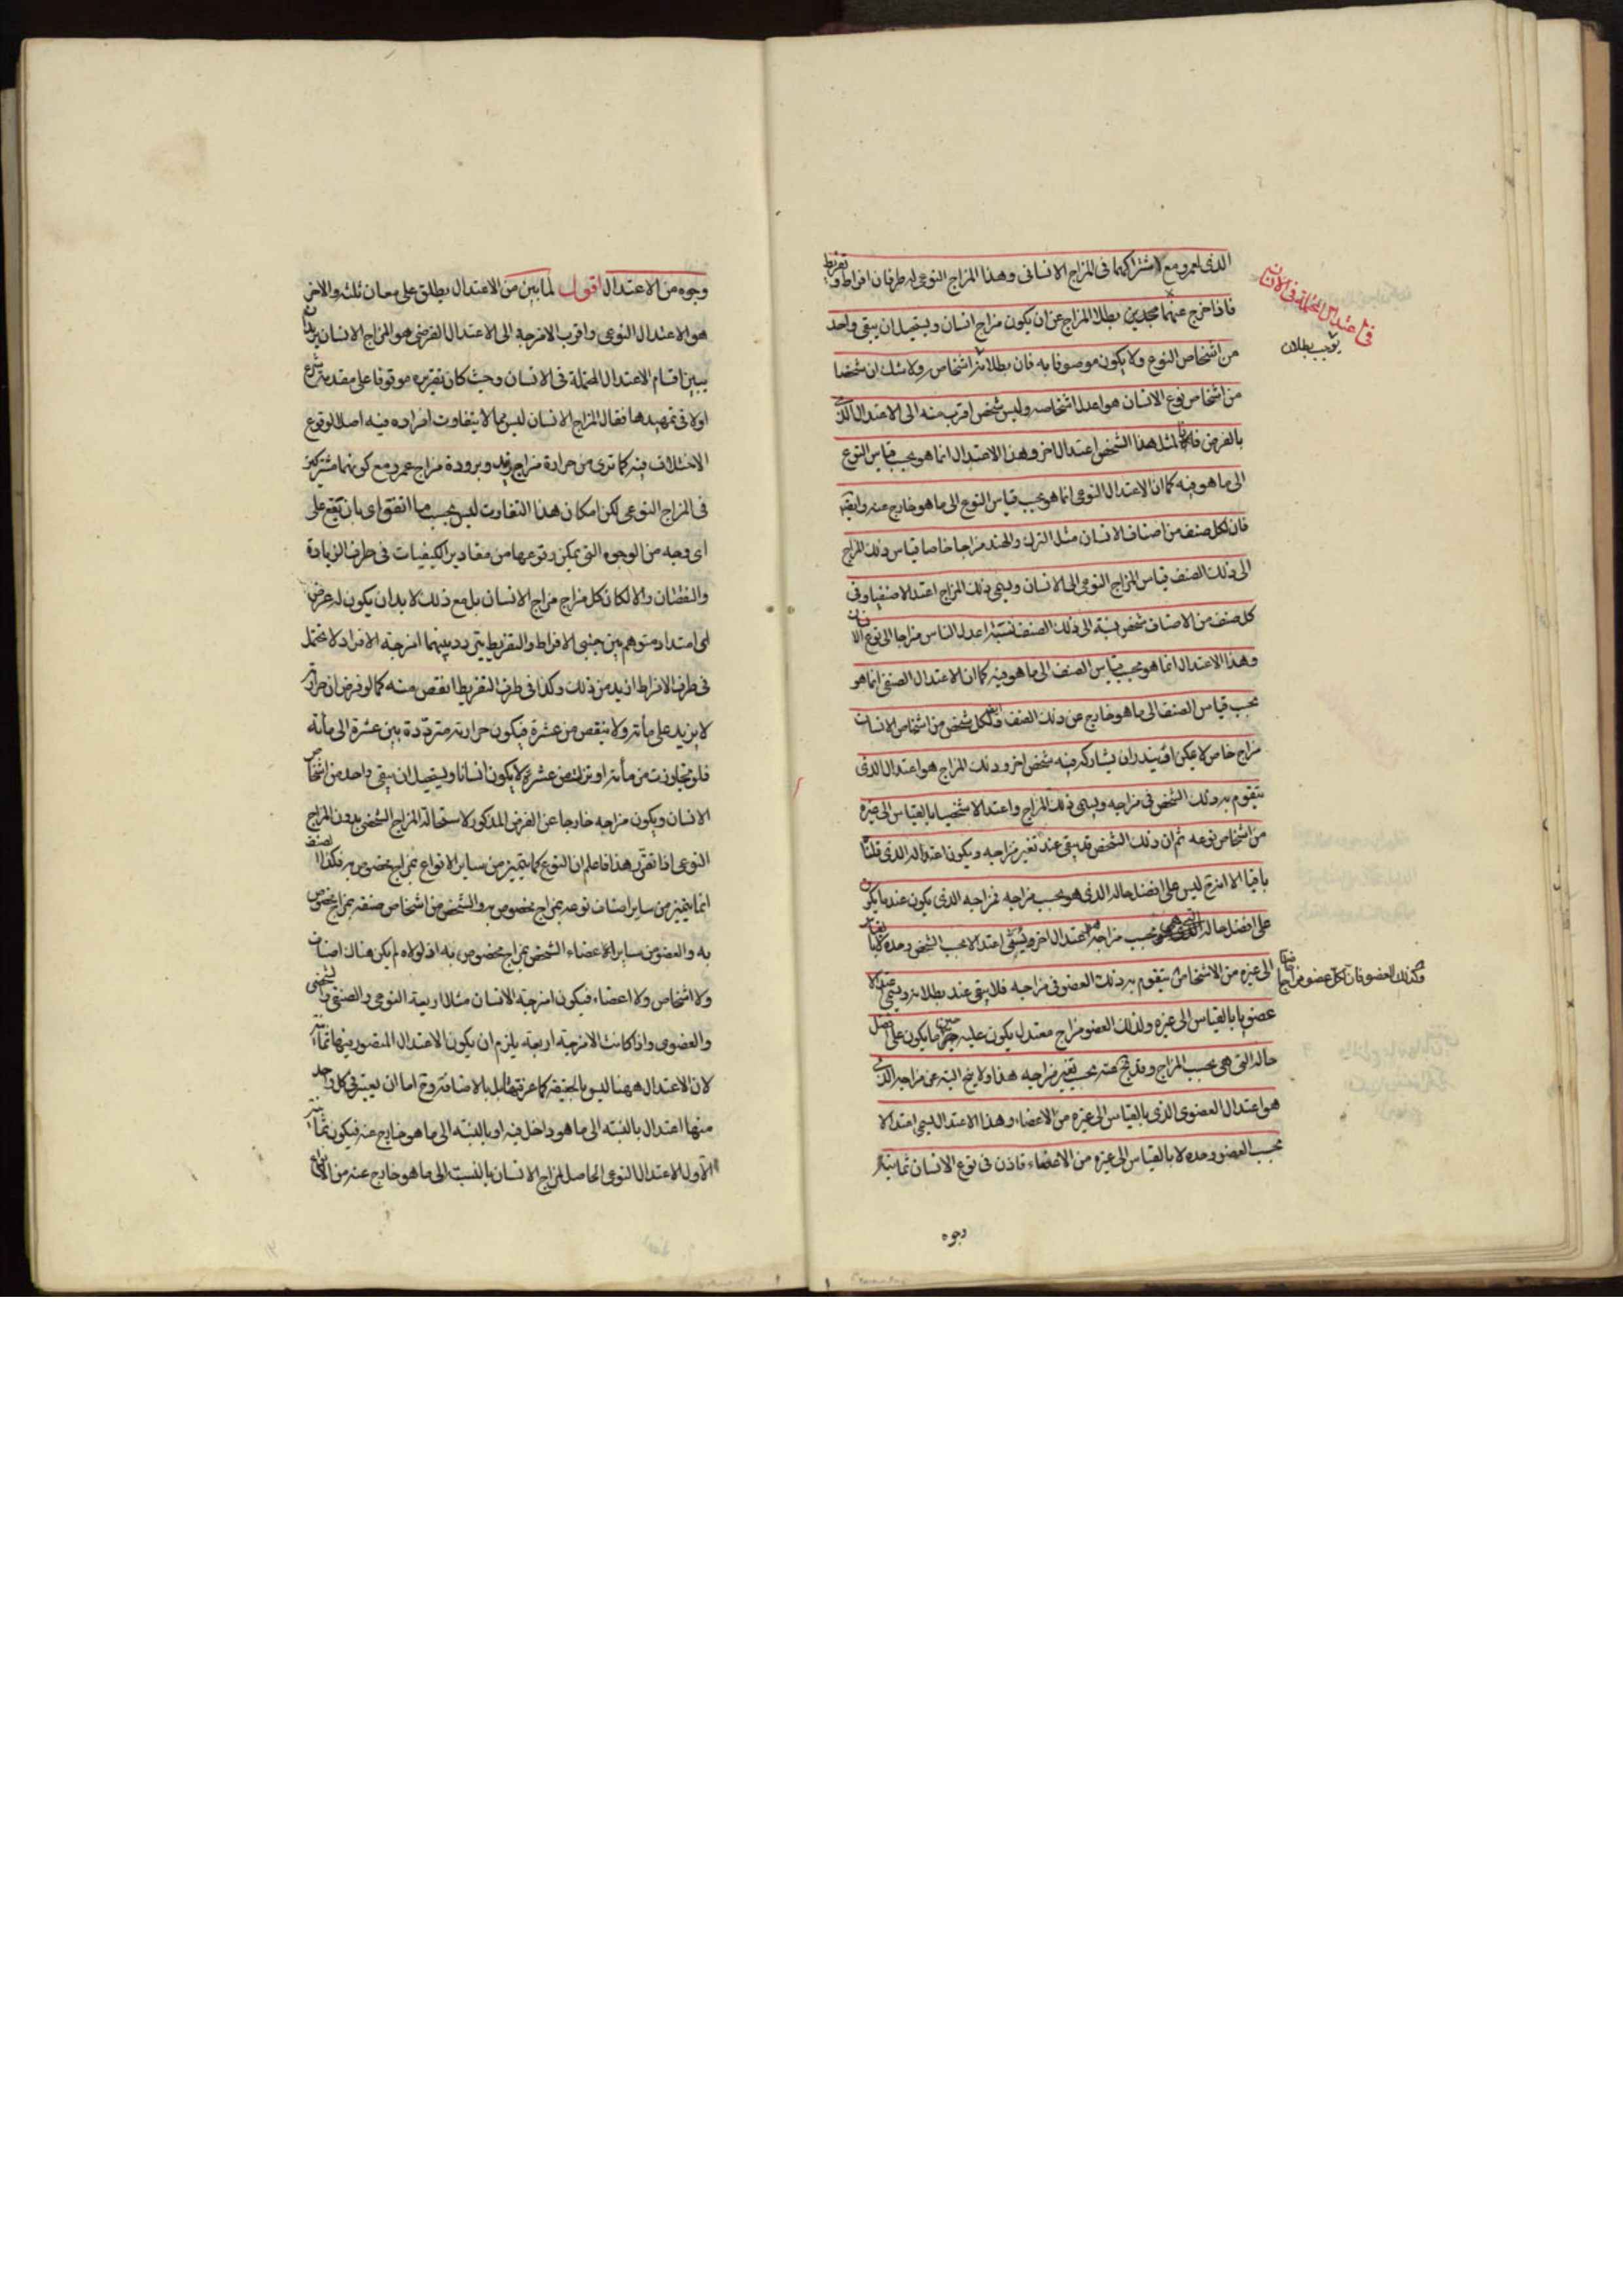 الذى لعمرو مع اشتراكهما فى المزاج الانسانى وهذا المزاج النوعى له طرفان افراط وتفريط
فاذا خرج عنهما بطلا المزاج عن ان يكون مزاج انسان ويستحيل ان يبقى واحد
من اشخاص النوع ولا يكون موصوفا به فان بطلانه اشخاصه ولا شك ان شخصا
من اشخاص نوع الانسان هو اعدل اشخاصه وليس شخص اقرب منه الى الاعتدال الذى
بالفرض فلمثل هذا الشخص اعتدال اخر وهذا الاعتدال انما هو بحسب قياس النوع
الى ما هو فيه كما ان الاعتدال النوعى انما هو بحسب قياس النوع الى ما هو خارج عنه وايضا
فان لكل صنف من اصناف الانسان مثل الترك والهند مزاجا خاصا قياس ذلك المزاج
الى ذلك الصنف قياس المزاج النوعى الى الانسان ويسمى ذلك المزاج اعتدالا صنفيا وفى
كل صنف من الاصناف شخص نسبته الى ذلك الصنف نسبة اعدل الناس مزاجا الى نوع الانسان
وهذا الاعتدال انما هو بحسب قياس الصنف الى ما هو فيه كما ان الاعتدال الصنفى انما هو
بحسب قياس الصنف الى ما هو خارج عن ذلك الصنف وايضا لكل شخص من اشخاص الانسان
مزاج خاص لا يمكن ان يشاركه فيه شخص اخر وذلك المزاج هو اعتدال الذى
يتقوم به ذلك الشخص فى مزاجه ويسمى ذلك المزاج واعتدالا شخصيا بالقياس الى غيره
من اشخاص نوعه ثم ان ذلك الشخص قد يبقى عند تغير مزاجه ويكون اعتداله الذى قلنا
باقيا الا انه ليس على افضل حاله الذى هو بحسب مزاجه فمزاجه الذى يكون عندما يكون
على افضل حاله التى هى بحسب مزاجه هو اعتدال اخر ويسمى اعتدالا بحسب الشخص وحده لا بالقياس
الى غيره من الاشخاص يتقوم به ذلك العضو فى مزاجه فلا يبقى عند بطلانه ويسمى اعتدالا
عضويا بالقياس الى غيره ولذلك العضو مزاج معتدل يكون عليه حين ما يكون على افضل
حاله التى هى بحسب المزاج وقد يخرج عنه بحسب تغير مزاجه هذا ولا يخرج البتة عن مزاجه الذى
هو اعتدال العضوى الذى بالقياس الى غيره من الاعضاء وهذا الاعتدال يسمى اعتدالا
بحسب العضو وحده لا بالقياس الى غيره من الاعضاء فاذن فى نوع الانسان ثمانية
وجوه
فى اعتدال المحتملة فى الانسان
يوجب بطلان
وكذلك العضو فان لكل عضو مزاجا خاصا
وجوه من الاعتدال اقول لما بين من الاعتدال يطلق على معان ثلثه والاخر
هو الاعتدال النوعى واقرب الامزجة الى الاعتدال الفرضى هو المزاج الانسان يريد ان
يبين اقسام الاعتدال المحتملة فى الانسان وحيث كان تقريره موقوفا على مقدمة شرع
اولا فى تمهيدها فقال المزاج الانسان ليس مما لا يتفاوت افراده فيه اصلا لوقوع
الاختلاف فيه كما ترى من حرارة مزاج زيد وبرودة مزاج عمرو مع كونهما مشتركين
فى المزاج النوعى لكن امكان هذا التفاوت ليس بحسب ما اتفق اى بان يقع على
اى وجه من الوجوه التى يمكن وقوعها من مقادير الكيفيات فى طرف الزيادة
والنقصان والا لكان كل مزاج مزاج الانسان بل مع ذلك لا بد ان يكون له عرض
اى امتداد متوهم بين جنبى الافراط والتفريط يتردد بينهما امزجة الافراد لا تحتمل
فى طرف الافراط ازيد من ذلك وكذا فى طرف التفريط انقص منه كما لو فرض ان حرارته
لا يزيد على مأته ولا ينقص من عشرة فيكون حرارته مترددة بين عشرة الى مأته
فلو تجاوزت من مأته او نزلت من عشرة لا يكون انسانا ويستحيل ان يبقى واحد من اشخاص
الانسان ويكون مزاجه خارجا عن الفرض المذكور لاستحالة المزاج الشخصى بدون المزاج
النوعى اذا تقرر هذا فاعلم ان النوع كما يتميز من ساير الانواع بمزاج مخصوص به فكذا الصنف
انما يتميز من ساير اصناف نوعه بمزاج مخصوص به والشخص من اشخاص صنفه بمزاج مخصوص
به والعضو من ساير اعضاء الشخص بمزاج مخصوص به اذ لولاه لم يكن هناك اصناف
ولا اشخاص ولا اعضاء فيكون امزجة الانسان مثلا اربعة النوعى والصنفى والشخصى
والعضوى واذا كانت الامزجة اربعة يلزم ان يكون الاعتدال المتصور فيها ثمانية
لان الاعتدال ههنا ليس بالحقيقة كما عرفتها بل بالاضافة وح اما ان يعتبر فى كل واحد
منها اعتدال بالنسبة الى ما هو داخل فيه او بالنسبة الى ما هو خارج عنه فيكون ثمانية
الاول الاعتدال النوعى الحاصل لمزاج الانسان بالنسبة الى ما هو خارج عنه من الانواع